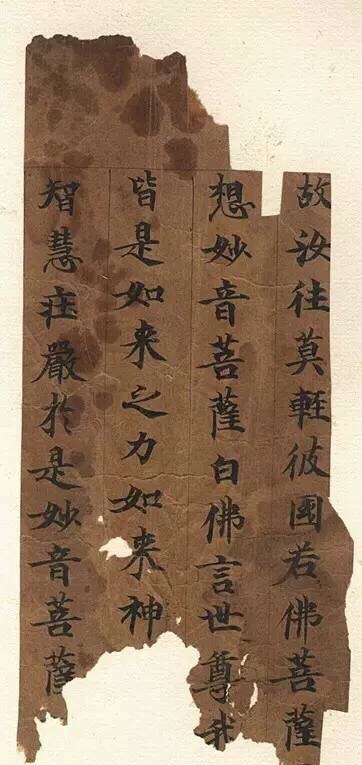 故汝往莫輕彼國若佛菩薩
想妙音菩薩白佛言世尊我
皆是如来之力如来神
智慧庄嚴於是妙音菩薩